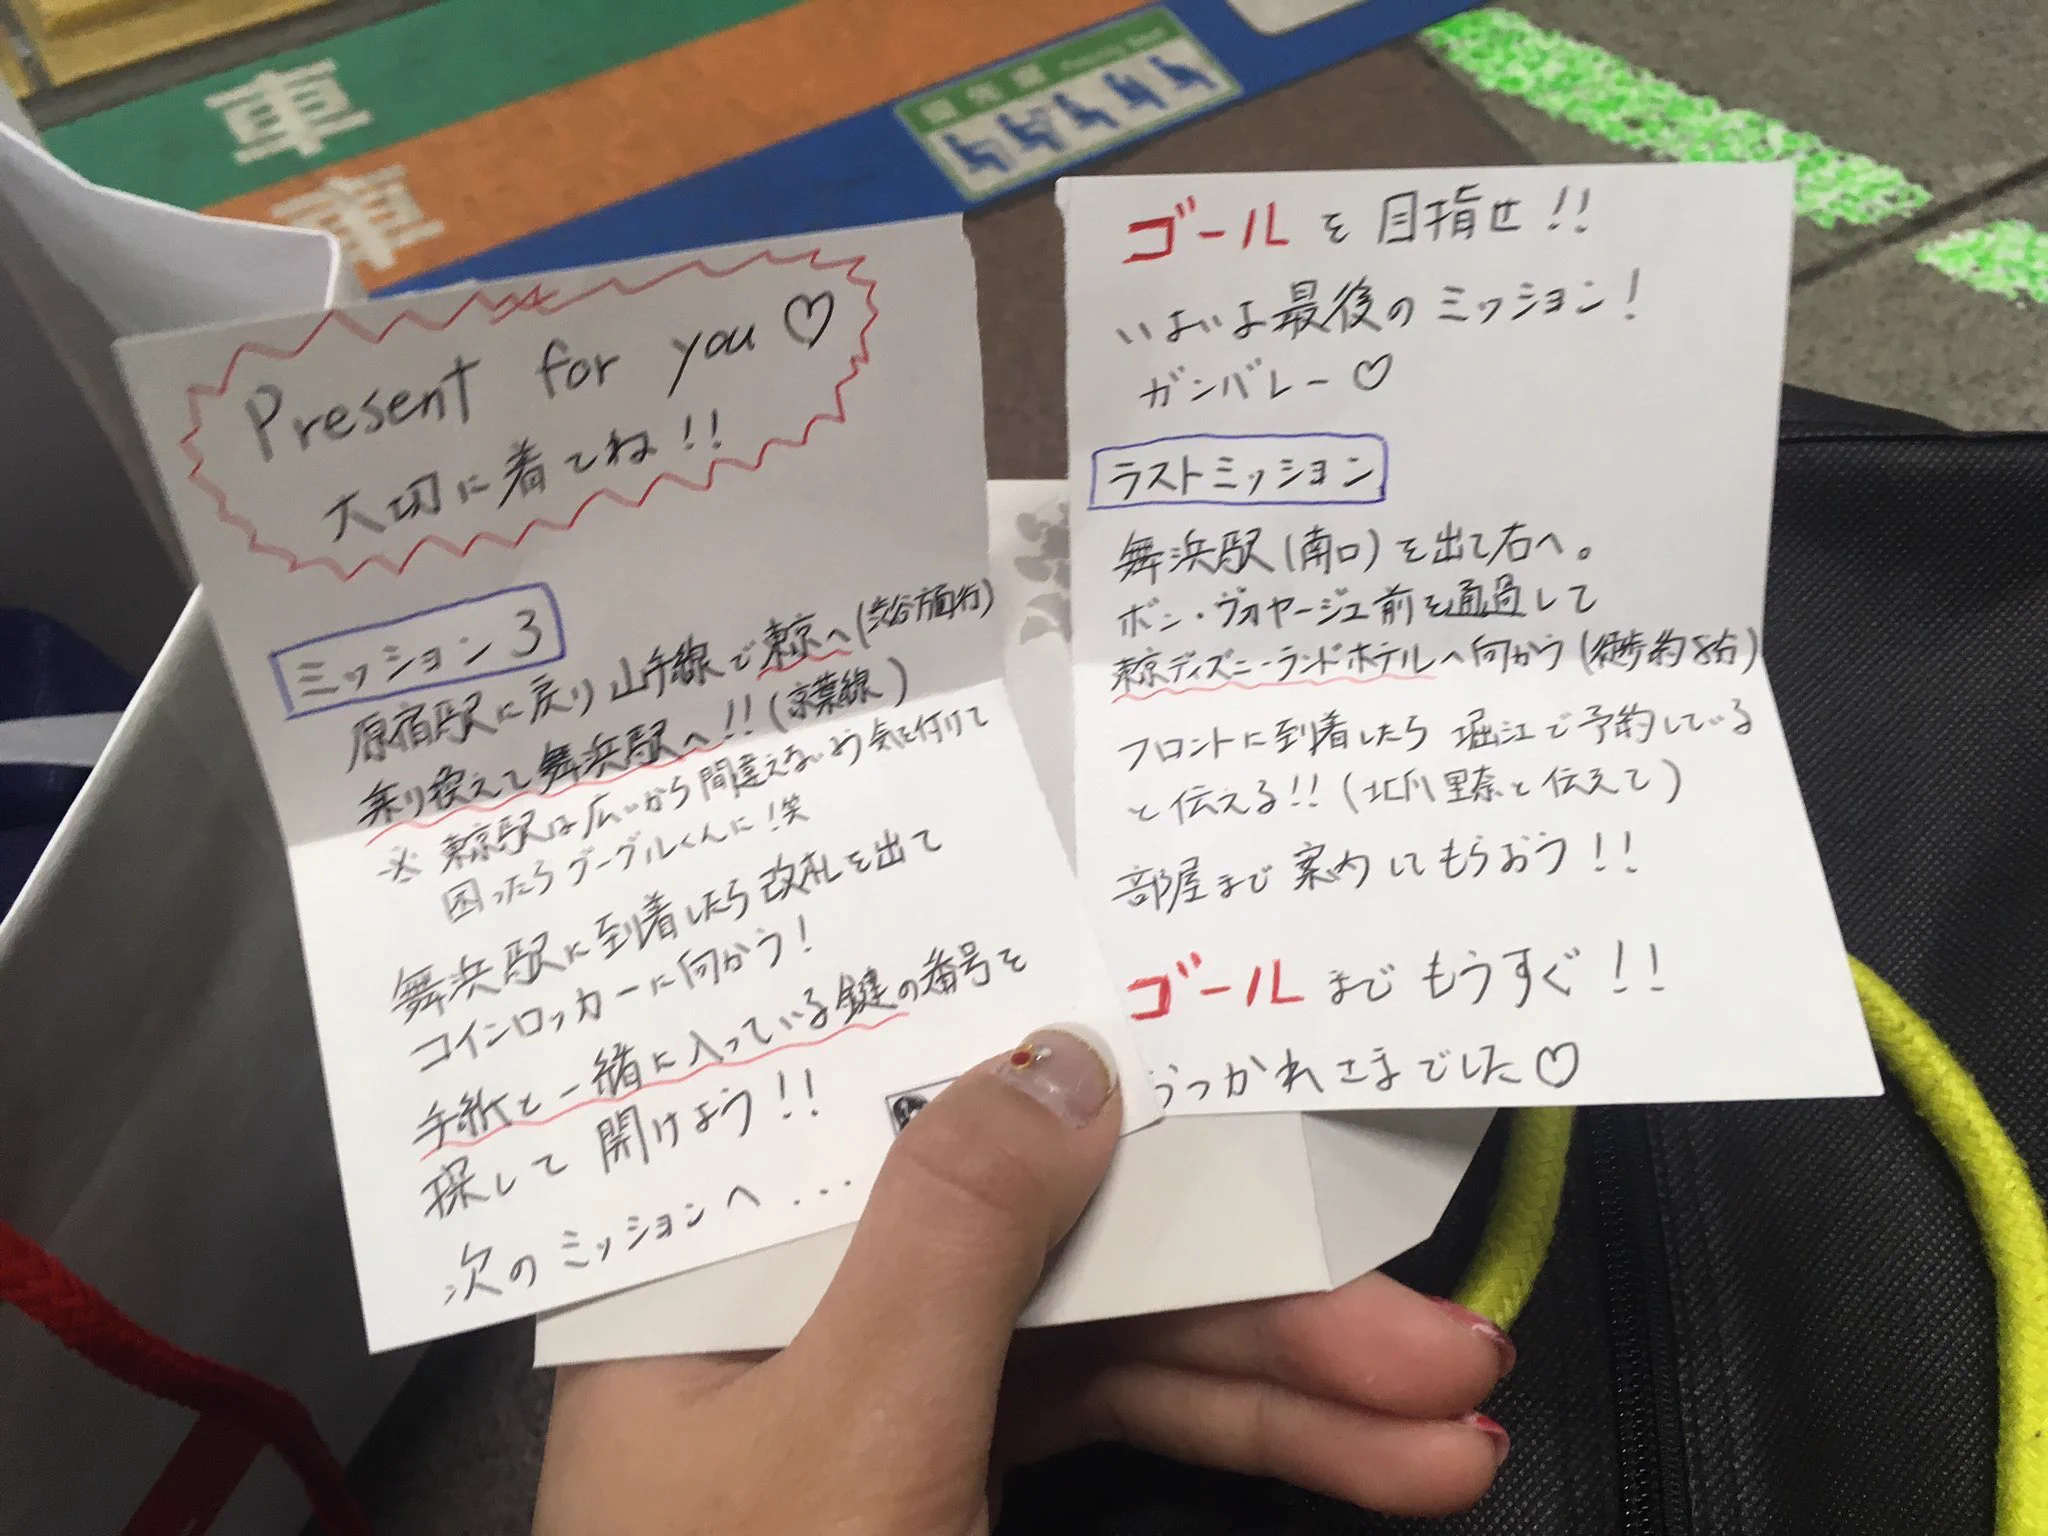 車
車
優先席
Priority Seat
Present for you♡
大切に着てね!!
ミッション3
原宿駅に戻り山手線で東京へ(渋谷方面行)
乗り換えて舞浜駅へ!!(京葉線)
※東京駅は広いから間違えないよう気を付けて
困ったらグーグルくんに!笑
舞浜駅に到着したら改札を出て
コインロッカーに向かう!
手紙と一緒に入っている鍵の番号を
探して開けよう!!
次のミッションへ...
ゴールを目指せ!!
いよいよ最後のミッション!
ガンバレー♡
ラストミッション
舞浜駅(南口)を出て右へ。
ボン・ヴォヤージュ前を通過して
東京ディズニーランドホテルへ向かう(徒歩約8分)
フロントに到着したら堀江で予約している
と伝える!!(北川里奈と伝えて)
部屋まで案内してもらおう!!
ゴールまでもうすぐ!!
おつかれさまでした♡